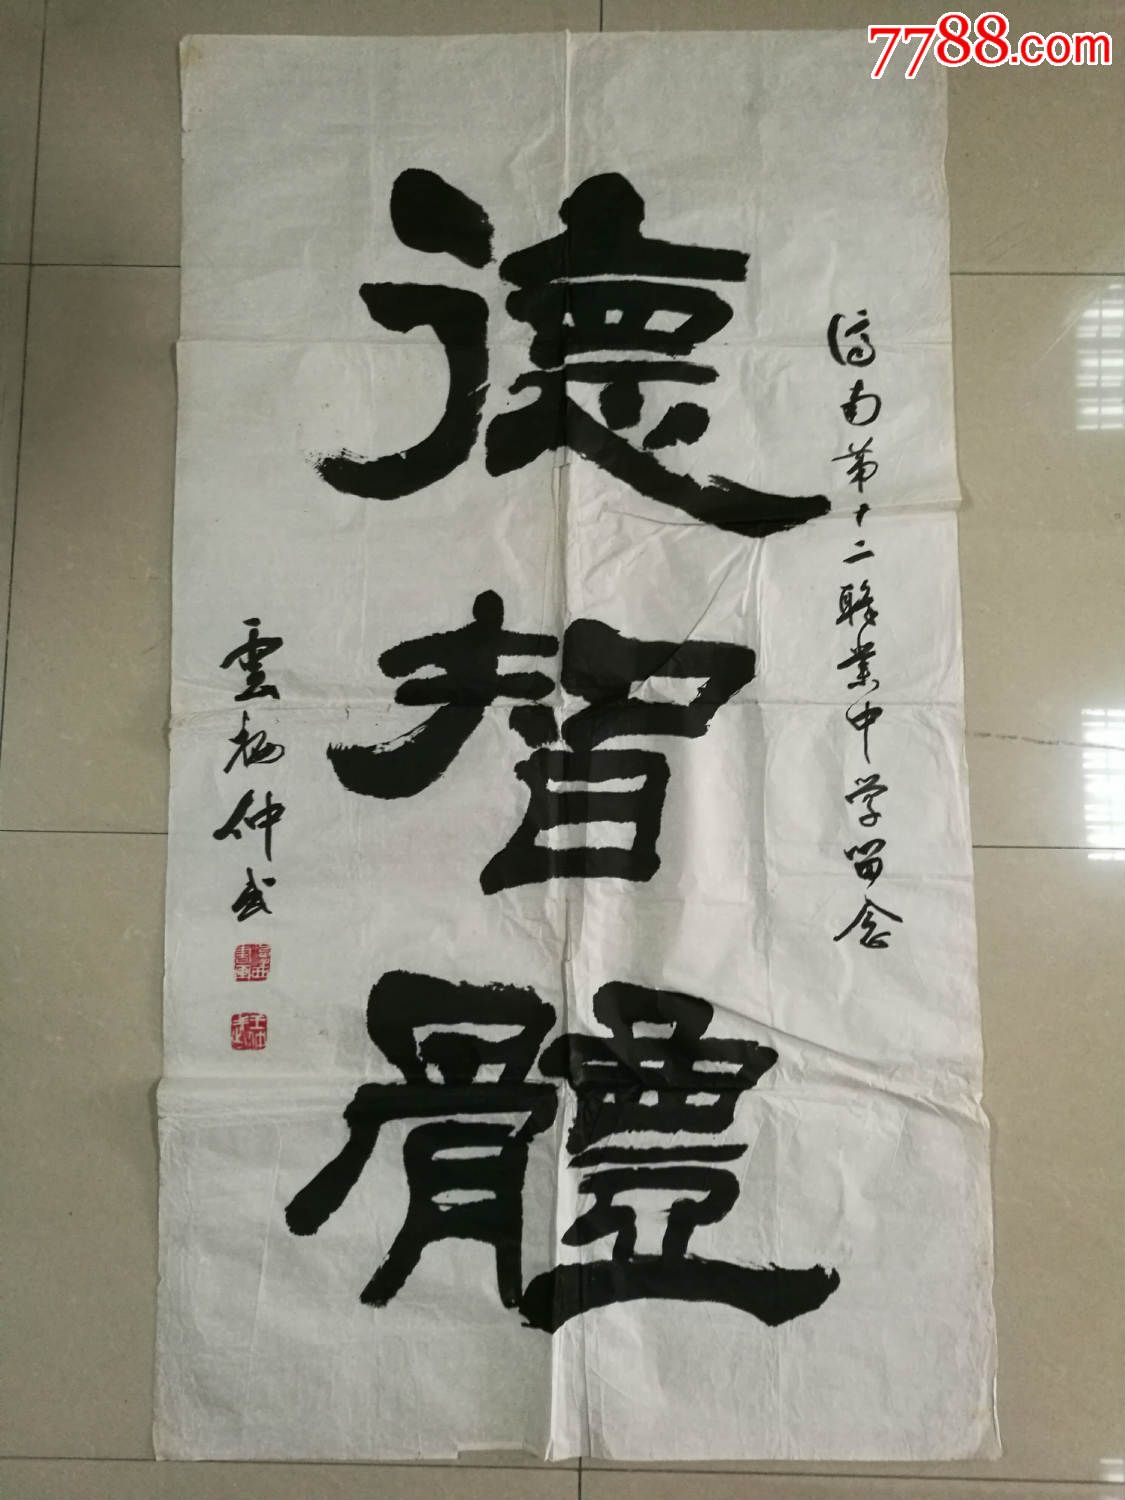 7788.com
德智體
济南第十二職業中学留念
雲梅仲武
王仲武